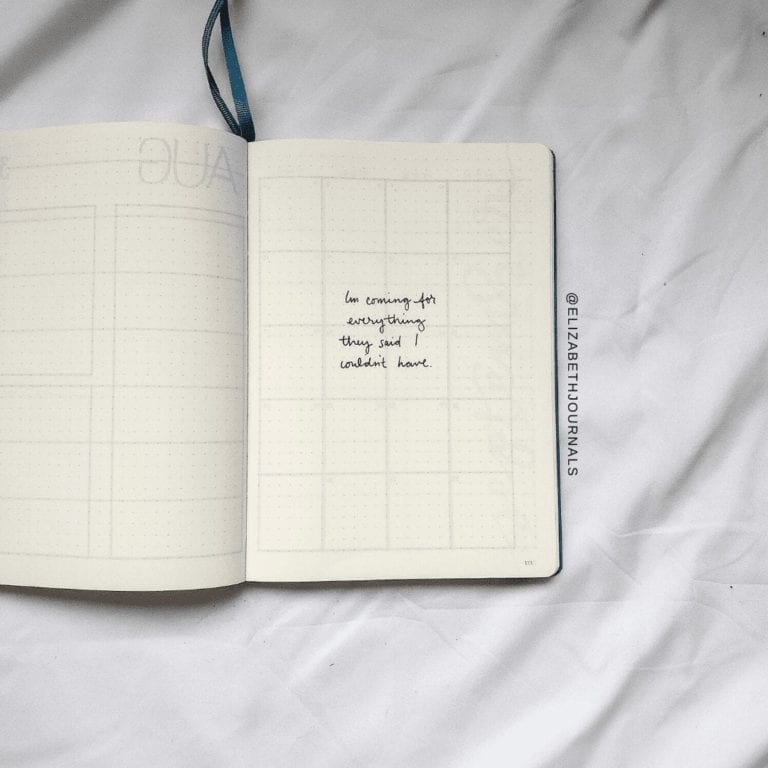 I'm coming for
everything
they said I
couldn't have.
@ELIZABETHJOURNALS